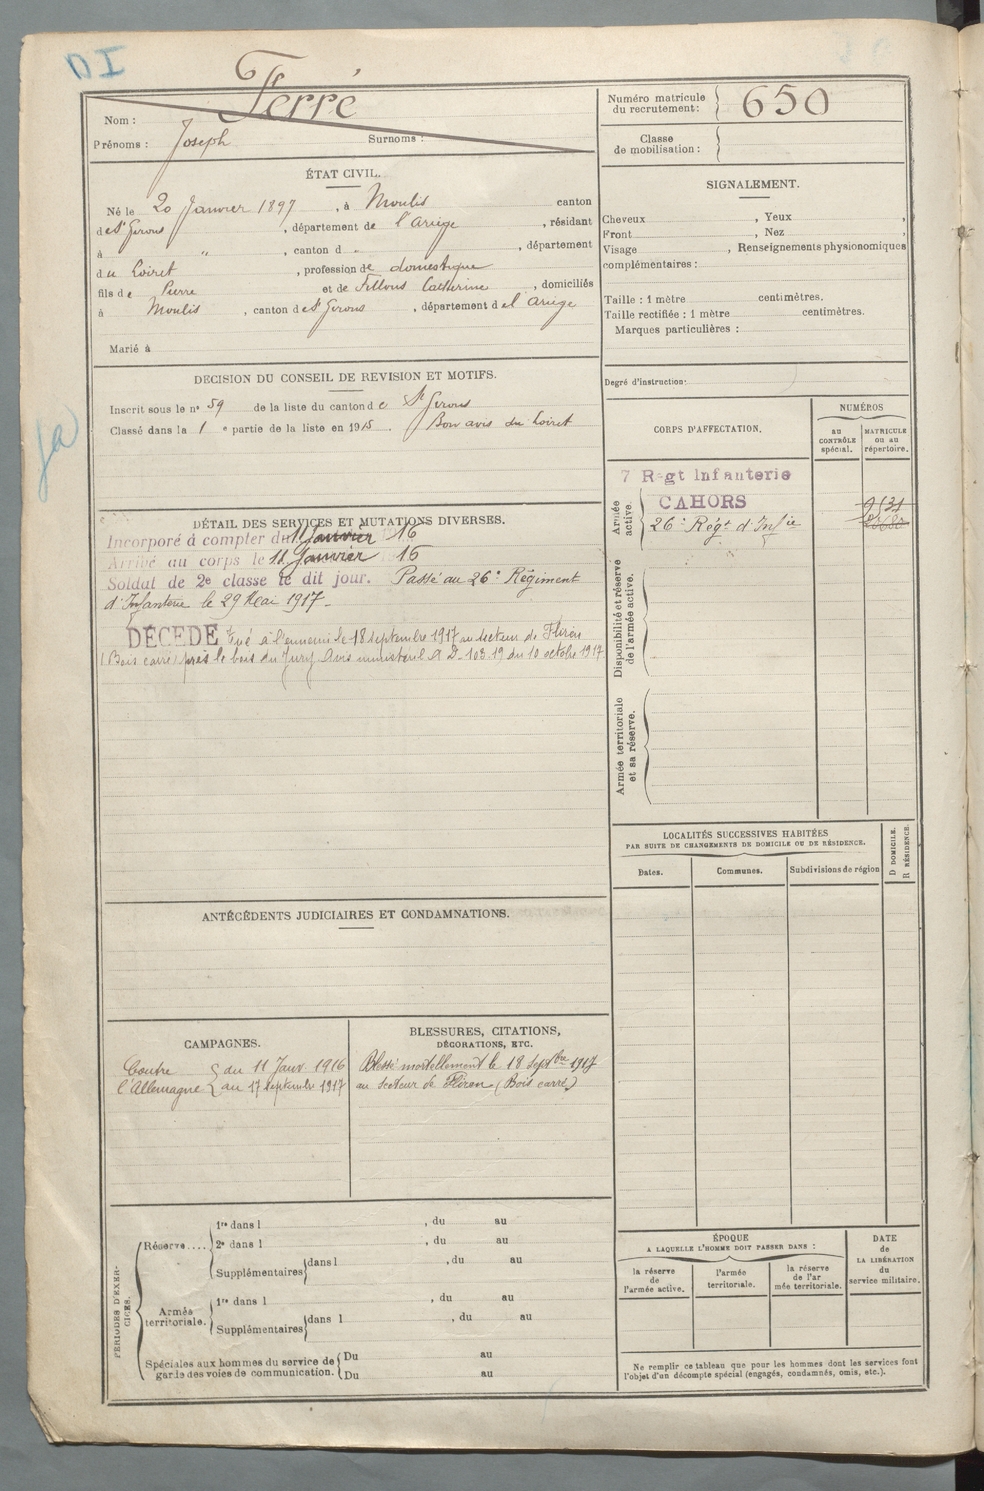 DI
Ferré
Nom :
Prénoms : Joseph Surnoms :
Numéro matricule du recrutement : 650
Classe de mobilisation :
ÉTAT CIVIL.
Né le 20 Janvier 1897, à Moulis canton
de St Girons, département de l'Ariège, résidant
à " , canton d " , département
du Loiret, profession de domestique
fils de Pierre et de Fillous Catherine, domiciliés
à Moulis, canton de St Girons, département de l'Ariège
Marié à
SIGNALEMENT.
Cheveux , Yeux ,
Front , Nez ,
Visage , Renseignements physionomiques
complémentaires :
Taille : 1 mètre centimètres.
Taille rectifiée : 1 mètre centimètres.
Marques particulières :
Degré d'instruction.
DECISION DU CONSEIL DE REVISION ET MOTIFS.
Inscrit sous le n° 59 de la liste du canton de St Girons
Classé dans la 1e partie de la liste en 1915. Bon avis du Loiret
DÉTAIL DES SERVICES ET MUTATIONS DIVERSES.
Incorporé à compter du 11 Janvier 16
Arrivé au corps le 11 Janvier 16
Soldat de 2e classe le dit jour. Passé au 26e Régiment
d'Infanterie le 29 Mai 1917.
DÉCÉDÉ tué à l'ennemi le 18 septembre 1917 au secteur de Flirey
(Bois carré) près le bois du Jury Avis ministériel A D 108.19 du 10 octobre 1917
CORPS D'AFFECTATION.
NUMÉROS
au CONTRÔLE spécial.
MATRICULE ou au répertoire.
Armée active.
7 Régt Infanterie
CAHORS
26e Régt d'Infie
Disponibilité et réserve de l'armée active.
Armée territoriale et sa réserve.
LOCALITÉS SUCCESSIVES HABITÉES
PAR SUITE DE CHANGEMENTS DE DOMICILE OU DE RÉSIDENCE.
Dates. Communes. Subdivisions de région
D DOMICILE.
R RÉSIDENCE.
ANTÉCÉDENTS JUDICIAIRES ET CONDAMNATIONS.
CAMPAGNES.
Contre { du 11 Janv 1916
l'Allemagne { au 17 septembre 1917
BLESSURES, CITATIONS,
DÉCORATIONS, ETC.
Blessé mortellement le 18 septbre 1917
au secteur de Fliren (Bois carré)
PÉRIODES D'EXERCICES.
Réserve....
1re dans l , du au
2e dans l , du au
Supplémentaires dans l , du au
Armée territoriale.
1re dans l , du au
Supplémentaires dans l , du au
Spéciales aux hommes du service de garde des voies de communication.
Du au
Du au
ÉPOQUE
A LAQUELLE L'HOMME DOIT PASSER DANS :
la réserve de l'armée active.
l'armée territoriale.
la réserve de l'armée territoriale.
DATE de LA LIBÉRATION du service militaire.
Ne remplir ce tableau que pour les hommes dont les services font
l'objet d'un décompte spécial (engagés, condamnés, omis, etc.).